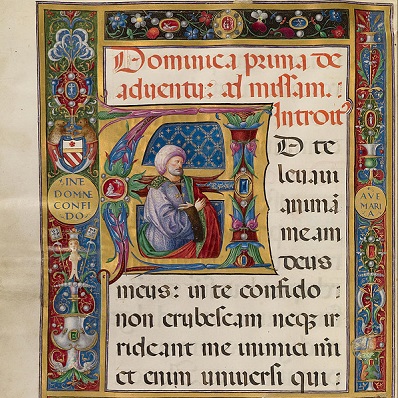 Dominica prima de
aduentu: ad missam.
Introitꝰ
A D te
leuaui
animā
meam
deus
meus: in te confido
non erubescam neqꝫ ir
rideant me inimici
et enim uniuersi qui:
DOMNE
CONFI
DO
AVE
MARI
A